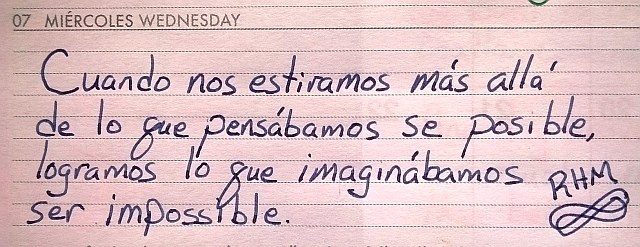 07 MIÉRCOLES WEDNESDAY
Cuando nos estiramos más allá
de lo que pensábamos se posible,
logramos lo que imaginábamos
ser impossible.
RHM